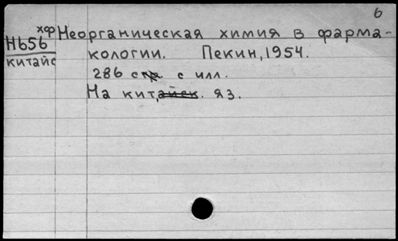 6
хф Неорганическая химия в фарма-
Н656 кологии. Пекин, 1954.
китайс 286 стр. с илл.
На китайск. яз.